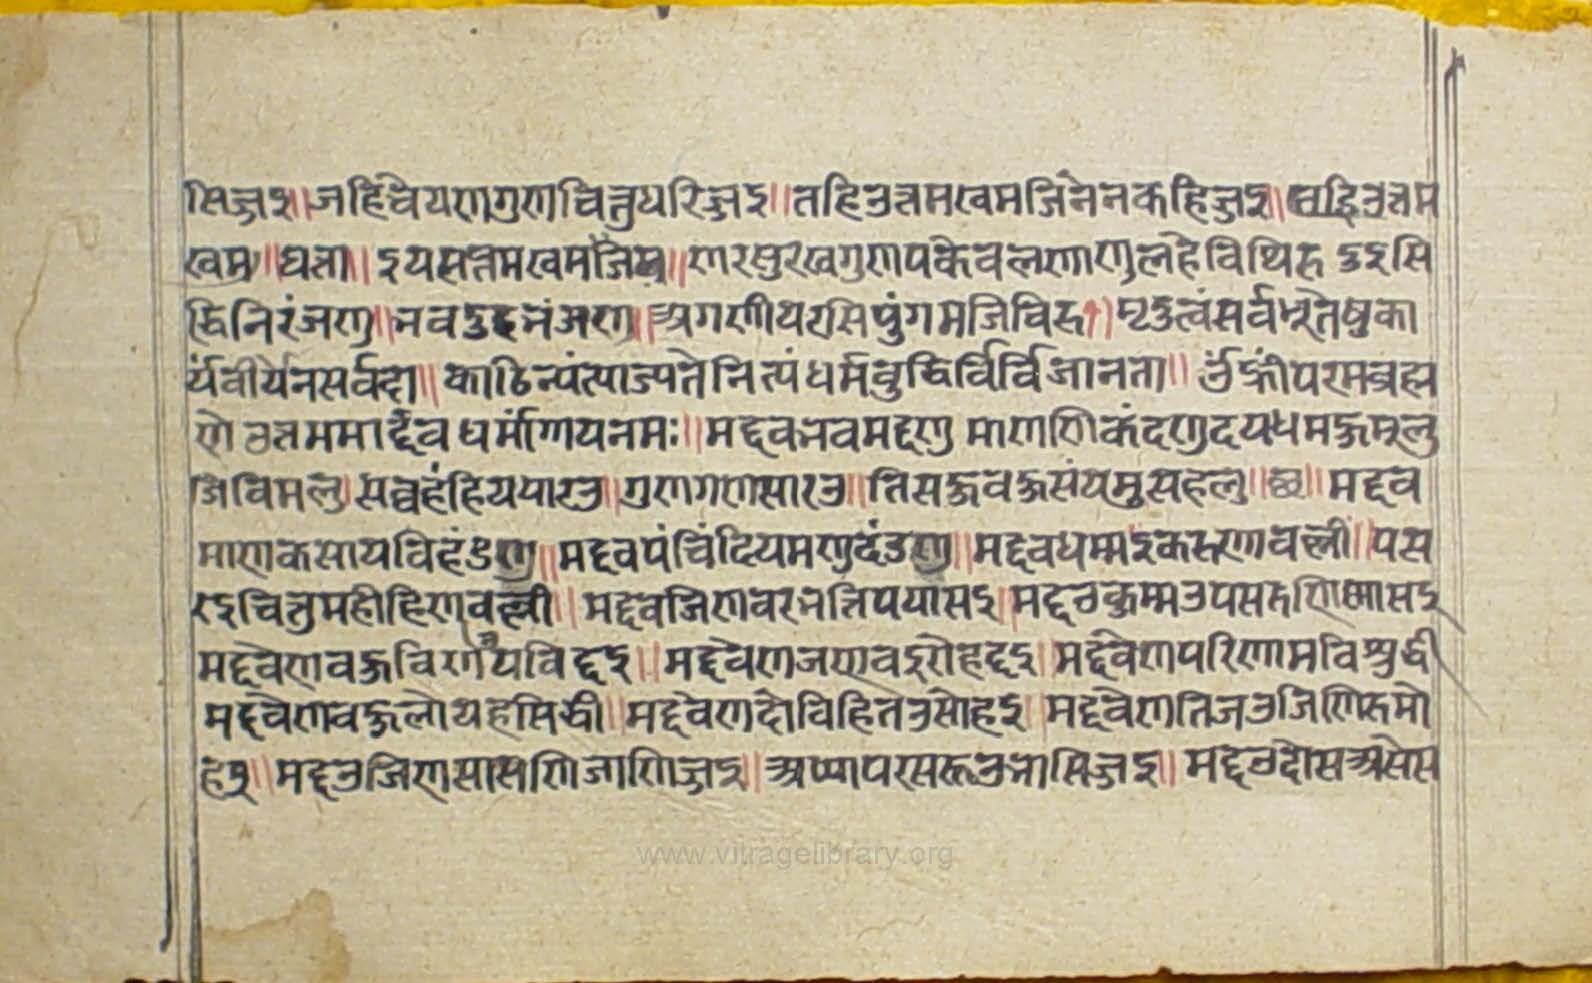 सिज्जइ॥ जहिं चेयणगुण चित्तु धरिज्जइ॥ तहि उत्तमखम जिनेन कहिज्जइ॥ छहि उत्तम
खम॥ घत्ता॥ इय सत्तम खमजिय॥ णरसुरखगुणय केवलणाणु लहेविथिह इइ सि
द्धि निरंजणु॥ भव दुह भंजणु॥ अगणीय रसि पुंगम जि विह १) मृदुत्वं सर्वभूतेषु का
र्यं वीर्येन सर्वदा॥ काठिन्यं त्याज्यते नित्यं धर्मबुद्धिर्विर्विजानता॥ ॐ ह्रीं परमब्रह्म
णे उत्तममार्द्दव धर्मांगाय नमः॥ मद्दव भवमद्दणु माणणिकंदणु दयधमहु मूलु
जि विमलु। सव्वहं हिययारउ॥ गुणगणसारउ॥ तिसहु वउ संयमु सहलु॥ छ॥ मद्दव
माणकसाय विहंडणु॥ मद्दव पंचिंदिय मणु दंडणु॥ मद्दव धम्मइ करुणवल्ली॥ पस
रइ चित्तु महीहिणवल्ली॥ मद्दव जिणवर भत्ति पयासइ॥ मद्दव कुम्मउ पसरु णिण्णासइ
मद्दवेण बहु विणय विद्दइ॥ मद्दवेण जणवइरो हद्दइ॥ मद्दवेण परिणाम विशुद्धी
मद्दवेण बहु लोयह सिद्धी॥ मद्दवेण दोविहि तउ सोहइ॥ मद्दवेण तिजउ जिणिरु मो
हइ॥ मद्दउ जिणसासणि जाणिज्जइ॥ अप्पापर सरूउ भासिज्जइ॥ मद्दव दोस असेस
www.vitragelibrary.org